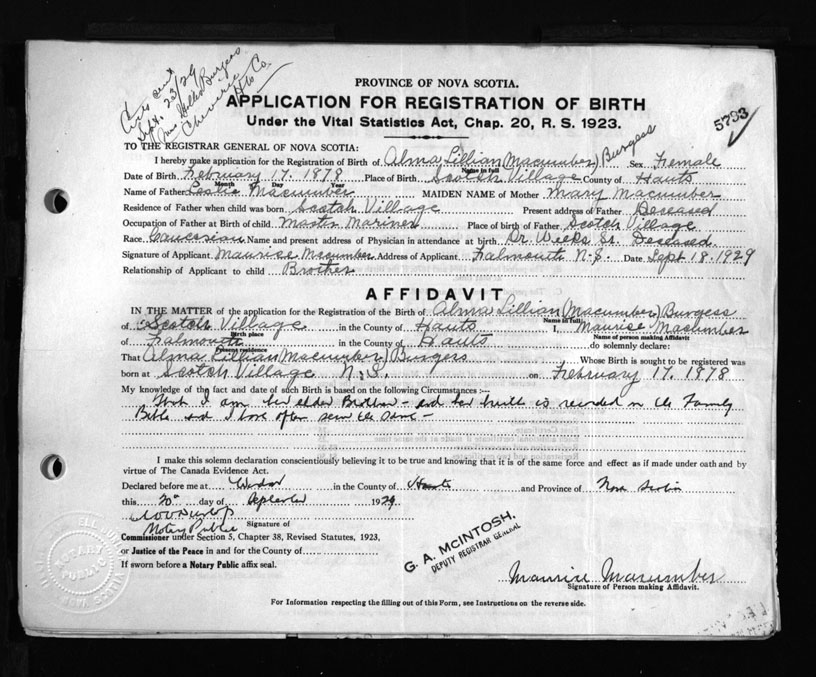 Sept. 23/29
Burgess
Cheverie
Hts Co.
PROVINCE OF NOVA SCOTIA.
APPLICATION FOR REGISTRATION OF BIRTH
Under the Vital Statistics Act, Chap. 20, R. S. 1923.
5793
TO THE REGISTRAR GENERAL OF NOVA SCOTIA:
I hereby make application for the Registration of Birth of Alma Lillian (Macumber) Burgess Sex Female
Name in full
Date of Birth February 17. 1878 Place of Birth Scotch Village County of Hants
Month Day Year
Name of Father Leslie Macumber MAIDEN NAME of Mother Mary Macumber
Residence of Father when child was born Scotch Village Present address of Father Deceased
Occupation of Father at Birth of child Master Mariner Place of birth of Father Scotch Village
Race Caucasian Name and present address of Physician in attendance at birth Dr Weeks Sr. Deceased.
Signature of Applicant Maurice Macumber Address of Applicant Falmouth N.S. Date Sept 18. 1929
Relationship of Applicant to child Brother
AFFIDAVIT
IN THE MATTER of the application for the Registration of the Birth of Alma Lillian (Macumber) Burgess
Name in full
of Scotch Village in the County of Hants I, Maurice Macumber
Birth place Name of person making Affidavit
of Falmouth in the County of Hants do solemnly declare:
Present residence
That Alma Lillian (Macumber) Burgess Whose Birth is sought to be registered was
born at Scotch Village N.S. on February 17. 1878
My knowledge of the fact and date of such Birth is based on the following Circumstances :—
That I am her elder Brother - and her birth is recorded in the Family
Bible and I have often seen the same -
I make this solemn declaration conscientiously believing it to be true and knowing that it is of the same force and effect as if made under oath and by
virtue of The Canada Evidence Act.
Declared before me at Windsor in the County of Hants and Province of Nova Scotia
this 20th day of September 1929
Notary Public Signature of
Commissioner under Section 5, Chapter 38, Revised Statutes, 1923,
or Justice of the Peace in and for the County of
If sworn before a Notary Public affix seal.
G. A. McINTOSH,
DEPUTY REGISTRAR GENERAL
Maurice Macumber
Signature of Person making Affidavit.
NOTARY
PUBLIC
NOVA SCOTIA
For Information respecting the filling out of this Form, see Instructions on the reverse side.